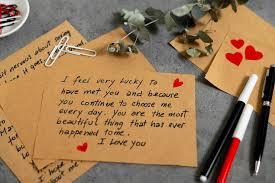 nervous about
I feel very lucky to
have met you and because
you continue to choose me
every day. You are the most
beautiful thing that has ever
happened to me.
I love you